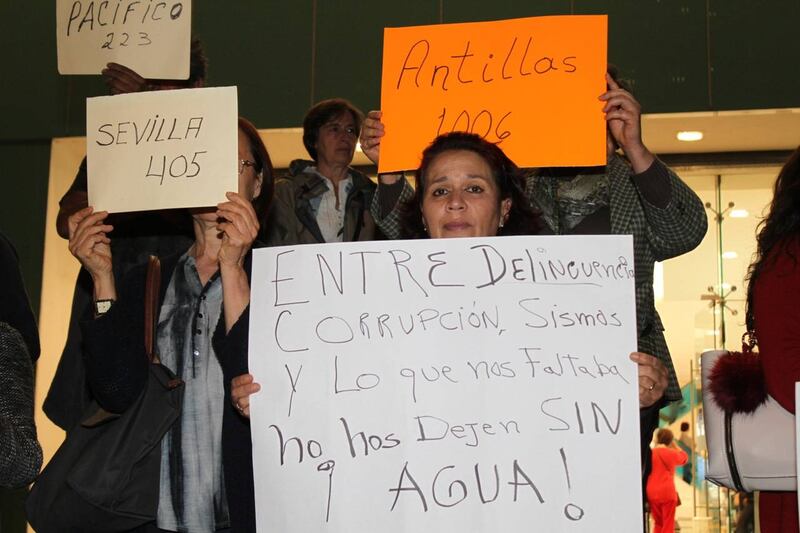 PACÍFICO
223
SEVILLA
405
Antillas
1006
ENTRE DELINCUENCIA
CORRUPCIÓN, SISMOS
y Lo que nos Faltaba
¡no, nos DEJEN SIN
AGUA!